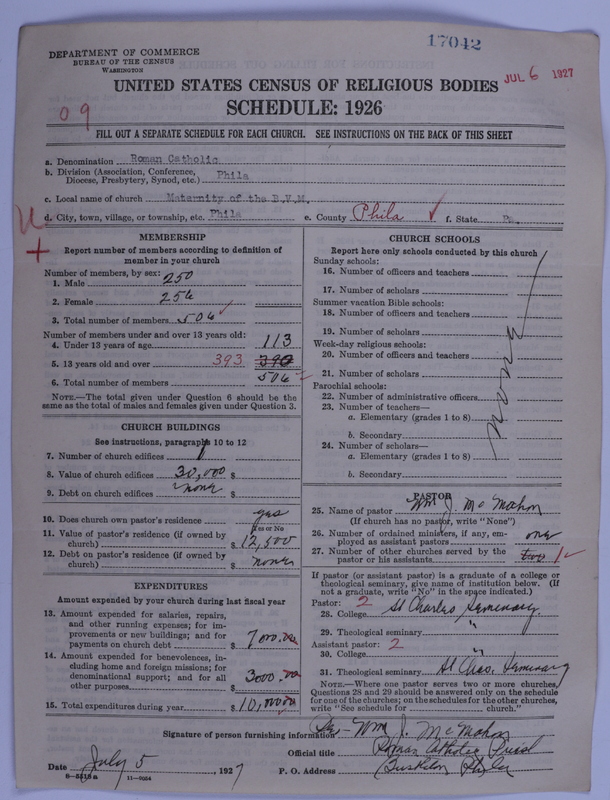 17042
DEPARTMENT OF COMMERCE
BUREAU OF THE CENSUS
WASHINGTON
JUL 6 1927
UNITED STATES CENSUS OF RELIGIOUS BODIES
SCHEDULE: 1926
09
FILL OUT A SEPARATE SCHEDULE FOR EACH CHURCH. SEE INSTRUCTIONS ON THE BACK OF THIS SHEET
a. Denomination Roman Catholic
b. Division (Association, Conference, Diocese, Presbytery, Synod, etc.) Phila
c. Local name of church Maternity of the B.V.M.
d. City, town, village, or township, etc. Phila e. County Phila f. State Pa.
MEMBERSHIP
Report number of members according to definition of
member in your church
Number of members, by sex:
1. Male 250
2. Female 256
3. Total number of members 506
Number of members under and over 13 years old:
4. Under 13 years of age 113
5. 13 years old and over 393 390
6. Total number of members 506
NOTE.—The total given under Question 6 should be the
same as the total of males and females given under Question 3.
CHURCH BUILDINGS
See instructions, paragraphs 10 to 12
7. Number of church edifices 1
8. Value of church edifices 30,000 $
9. Debt on church edifices none $
10. Does church own pastor's residence yes
Yes or No
11. Value of pastor's residence (if owned by
church) $ 12,500
12. Debt on pastor's residence (if owned by
church) $ none
EXPENDITURES
Amount expended by your church during last fiscal year
13. Amount expended for salaries, repairs,
and other running expenses; for im-
provements or new buildings; and for
payments on church debt $ 7000.00
14. Amount expended for benevolences, in-
cluding home and foreign missions; for
denominational support; and for all
other purposes $ 3000.00
15. Total expenditures during year $ 10,000.00
CHURCH SCHOOLS
Report here only schools conducted by this church
Sunday schools:
16. Number of officers and teachers
17. Number of scholars
Summer vacation Bible schools:
18. Number of officers and teachers
19. Number of scholars
Week-day religious schools:
20. Number of officers and teachers
21. Number of scholars
Parochial schools:
22. Number of administrative officers
23. Number of teachers—
a. Elementary (grades 1 to 8)
b. Secondary
24. Number of scholars—
a. Elementary (grades 1 to 8)
b. Secondary
none
PASTOR
25. Name of pastor Wm J. McMahon
(If church has no pastor, write "None")
26. Number of ordained ministers, if any, em-
ployed as assistant pastors one
27. Number of other churches served by the
pastor or his assistants two 1
If pastor (or assistant pastor) is a graduate of a college or
theological seminary, give name of institution below. (If
not a graduate, write "No" in the space indicated.)
Pastor: 2
28. College St Charles Seminary
29. Theological seminary "
Assistant pastor: 2
30. College "
31. Theological seminary St Chas. Seminary
NOTE.—Where one pastor serves two or more churches,
Questions 28 and 29 should be answered only on the schedule
for one of the churches; on the schedules for the other churches,
write "See schedule for church."
Signature of person furnishing information Wm J. McMahon
Official title Roman Catholic Priest
Date July 5, 1927 P. O. Address
8—5519a 11—9004